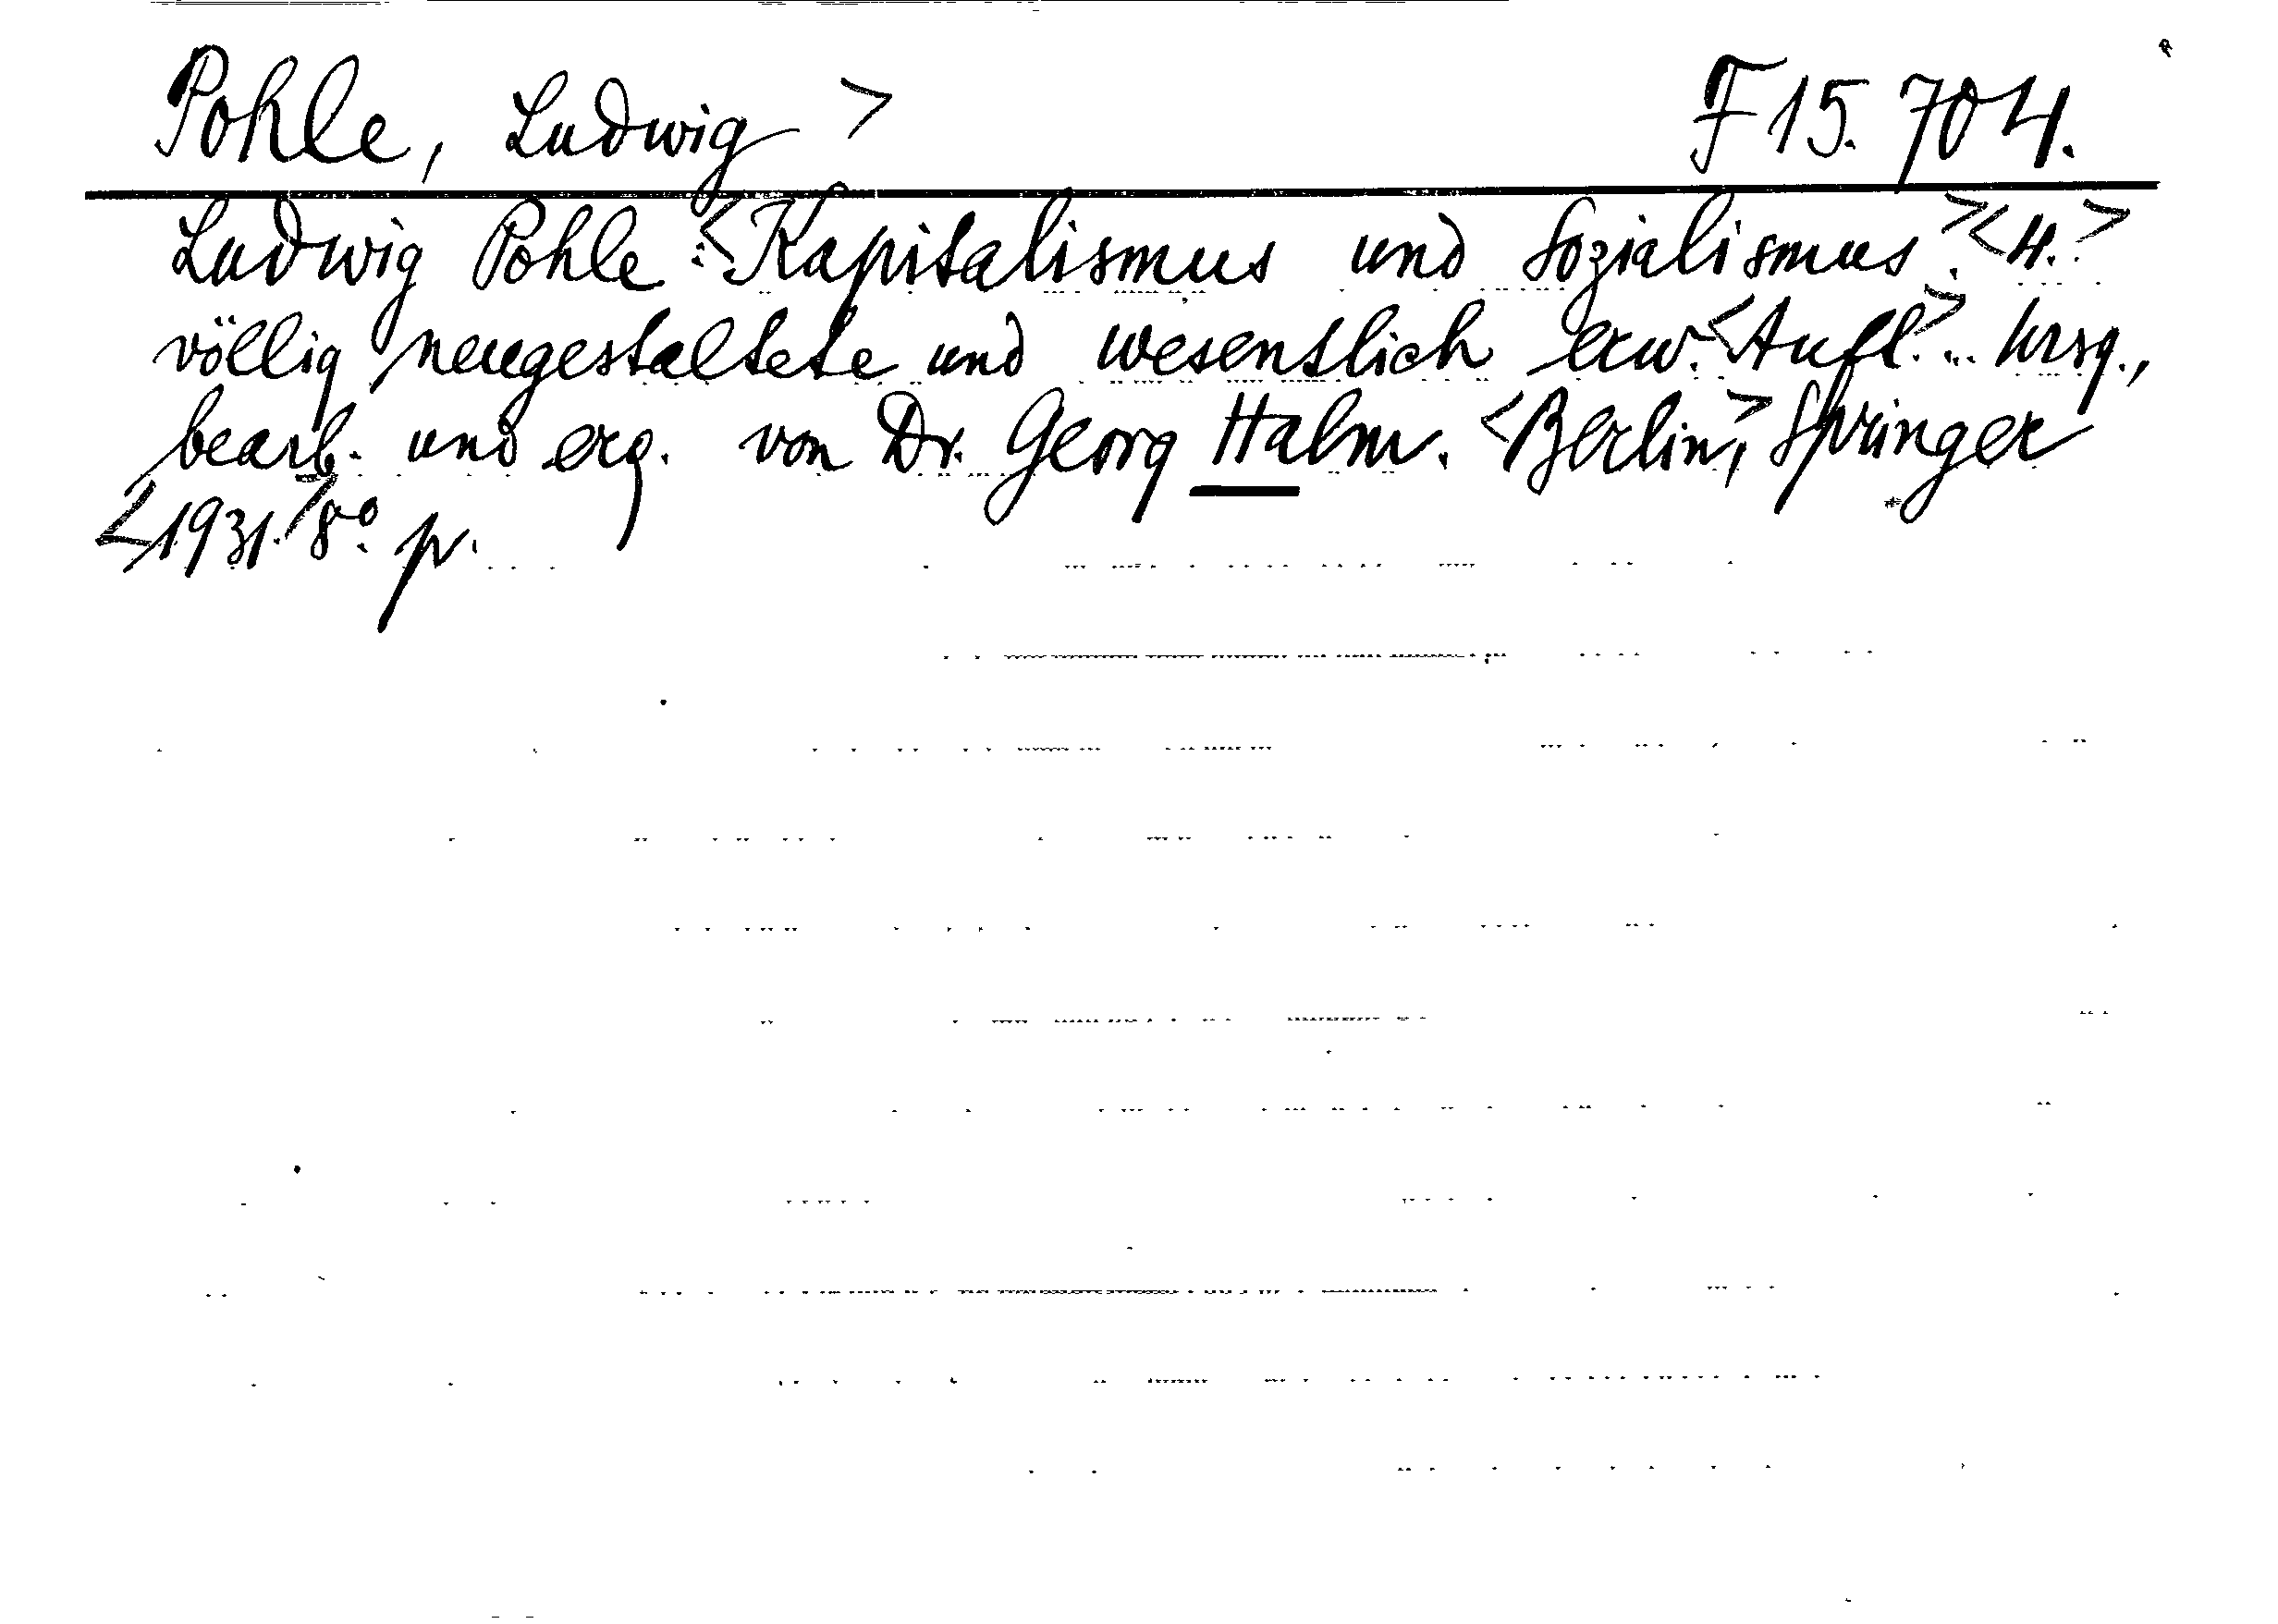 Pohle, Ludwig > F 15.704.
Ludwig Pohle: <Kapitalismus und Sozialismus.> <4.>
völlig neugestaltete und wesentlich erw. <Aufl.> ... hrsg.,
bearb. und erg. von Dr. Georg Halm. <Berlin,> Springer
<1931.> 8° p.